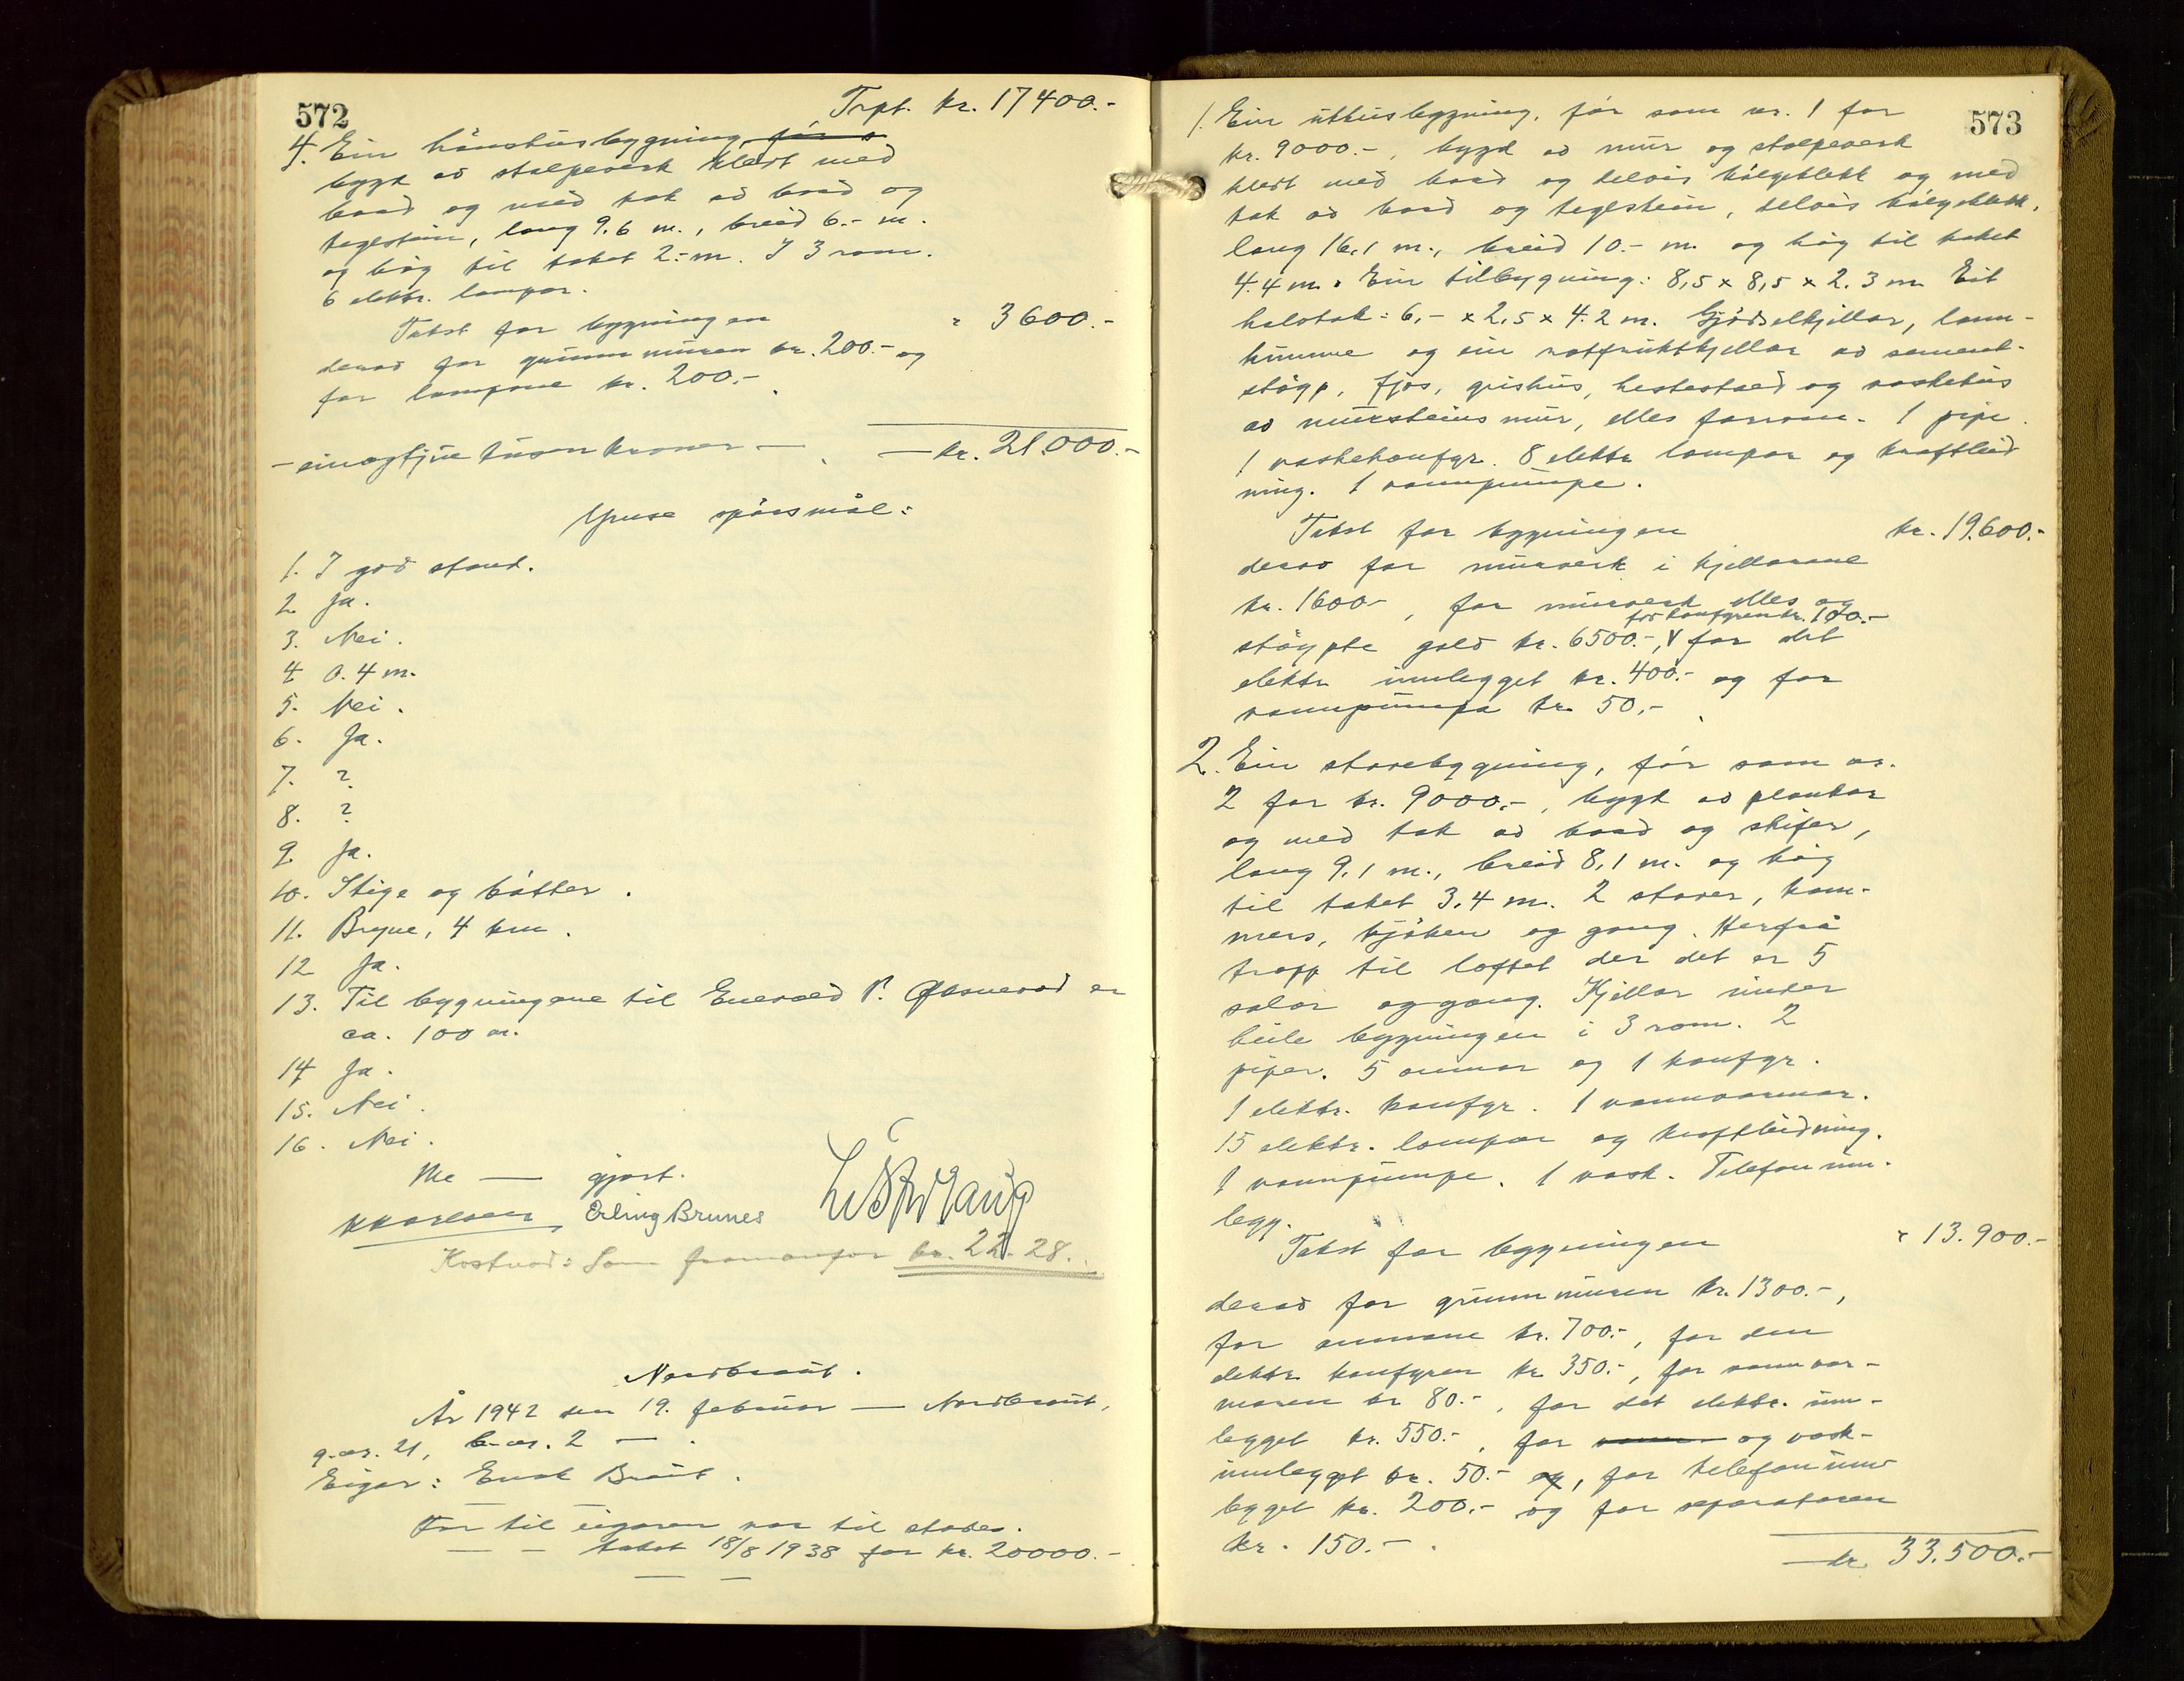 572
Trpt. kr. 17400.-
4. Ein hönsehusbygning før s
bygt av stolpeverk kledt med
bord og med tak av bord og
teglstein, lang 9.6 m., breid 6.- m.
og høg til taket 2.- m. I 3 rom.
6 elektr. lampor.
Takst for bygningen " 3600.-
derav for grunnmuren kr. 200.- og
for lampone kr. 200.-
- einogtjue tusen kroner — — kr. 21.000.-
Ymse spørsmål:
1. I god stand.
2. Ja.
3. Nei.
4. 0.4 m.
5. Nei.
6. Ja.
7. ?
8. ?
9. Ja.
10. Stige og bøtter.
11. Bryne, 4 km.
12 Ja.
13. Til bygningane til Enevald P. er
ca. 100 m.
14 Ja.
15. Nei.
16. Nei.
Me — gjort.
Erling Brunes
Kostnad: Som framanfor kr. 22.28.
Nordbraut.
År 1942 den 19. februar — Nordbraut,
g.nr. 21, b.nr. 2 — .
Eigar: Enok Braut.
Far til eigaren var til stades.
— — takst 18/8 1938 for kr. 20000.-
— —
573
1. Ein uthusbygning, før som nr. 1 for
kr. 9000.-, bygd av mur og stolpeverk
kledt med bord og delvis bølgeblekk og med
tak av bord og teglstein, delvis bølgeblekk,
lang 16,1 m., breid 10.- m. og høg til taket
4.4 m. Ein tilbygning: 8,5 x 8,5 x 2.3 m. Eit
halvtak: 6,- x 2,5 x 4.2 m. Gjødselkjellar, lann-
kumme og ein rotfruktkjellar av sement-
støyp, fjøs, grishus, hestestall og vaskehus
av mursteins mur, elles forrom. 1 pipe.
1 vaskekomfyr. 8 elektr lampor og kraftleid
ning. 1 vannpumpe.
Takst for bygningen kr. 19.600.-
derav for murverk i kjellarane
kr. 1600.-, for murverk elles og
for komfyren kr. 100.-
støypte golv kr. 6500.-, V for det
elektr innlegget kr. 400.- og for
vannpumpa kr. 50,-
2. Ein stovebygning, før som nr.
2 for kr. 9000.-, bygt av plankar
og med tak av bord og skifer,
lang 9,1 m., breid 8,1 m. og høg
til taket 3,4 m. 2 stover, kam-
mers, kjøken og gang. Herfrå
trapp til loftet der det er 5
salar og gang. Kjellar under
heile bygningen i 3 rom. 2
piper. 5 omnar og 1 komfyr.
1 elektr. komfyr. 1 vannvarmar.
15 elektr. lampor og kraftleidning.
1 vannpumpe. 1 vask. Telefon inn-
legg.
Takst for bygningen " 13.900.-
derav for grunnmuren kr. 1300.-,
for omnane kr. 700.-, for den
elektr komfyren kr 350.-, for vannvar-
maren kr 80.-, for det elektr. inn-
legget kr. 550.-, for og vask-
innlegget kr. 50.- og, for telefoninn
legget kr. 200.- og for separatoren
kr. 150.- .
— kr 33.500.-